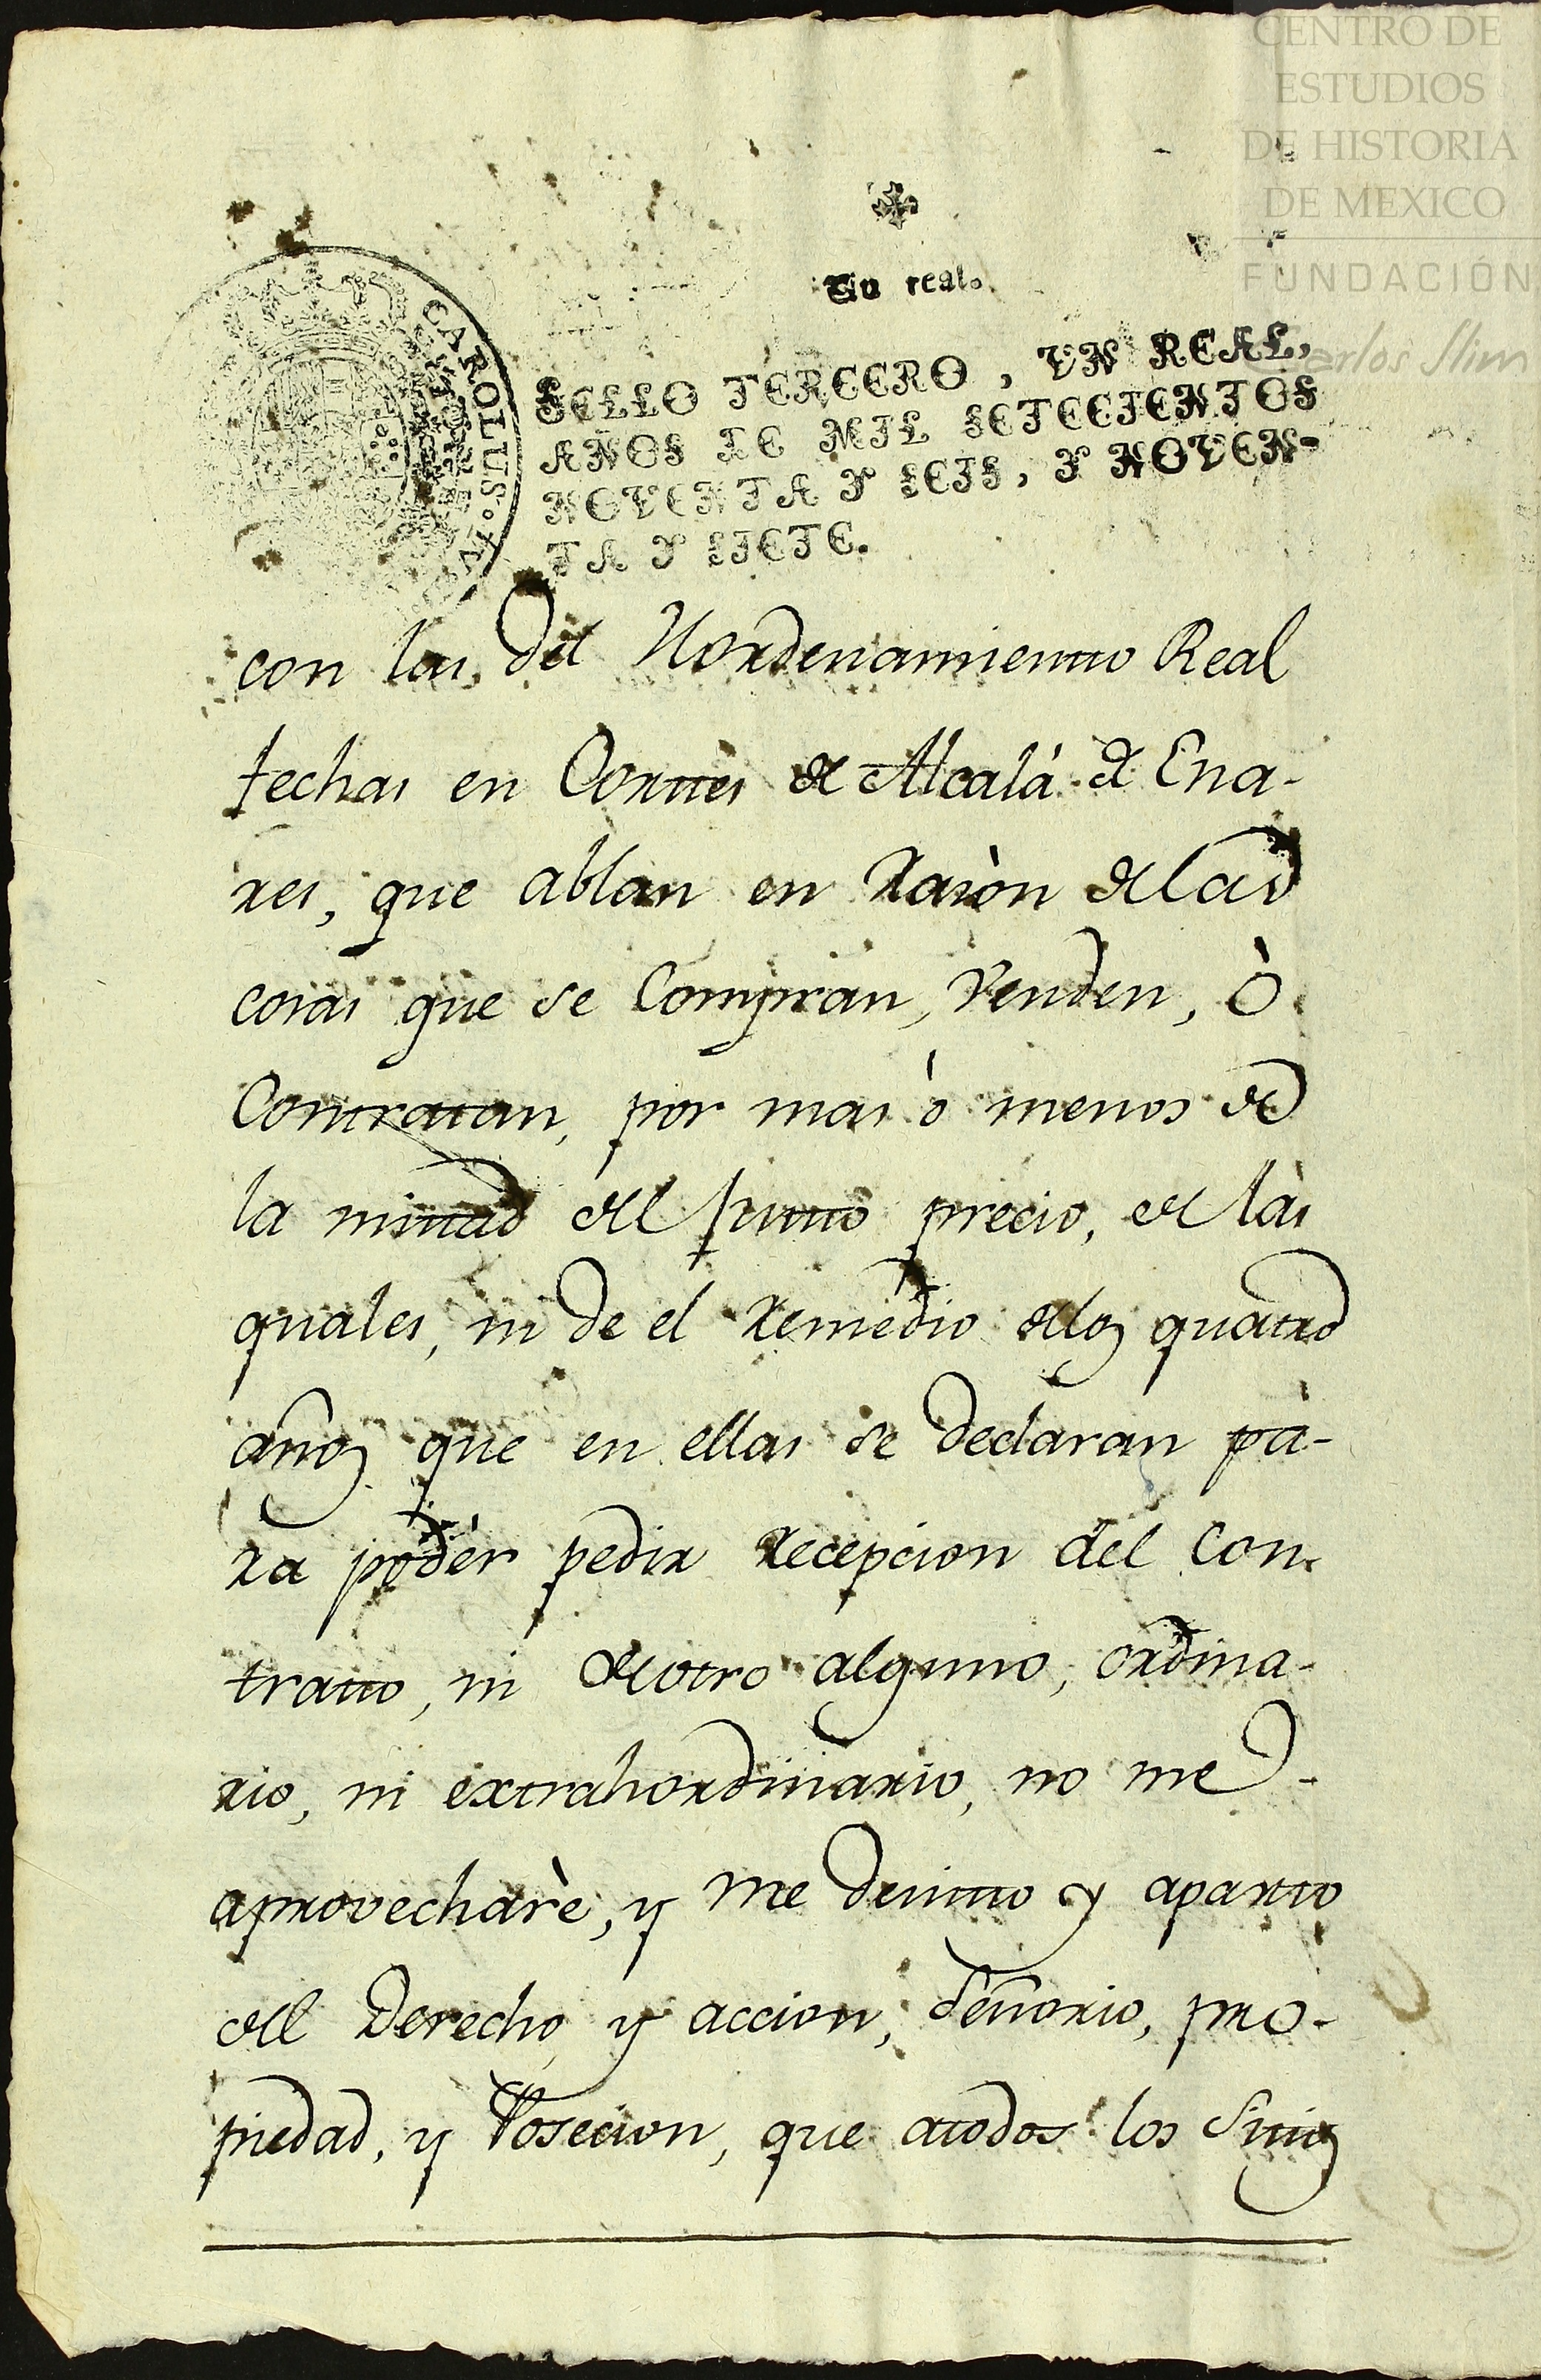 CENTRO DE
ESTUDIOS
DE HISTORIA
DE MEXICO
FUNDACIÓN
Carlos Slim
Un real.
CAROLUS
SELLO TERCERO, VN REAL,
AÑOS DE MIL SETECIENTOS
NOVENTA Y SEIS, Y NOVEN-
TA Y SIETE.
con las del Hordenamiento Real
fechas en Cortes de Alcalá de Ena-
res, que ablan en razòn de las
cosas que se Compran, Venden, ò
Contratan, por mas ó menos de
la mitad del justo precio, de las
quales, ni de el remedio de los quatro
años que en ellas se declaran pa-
ra podér pedir recepcion del Con-
trato, ni de otro alguno, ordina-
rio, ni extrahordinario, no me
aprovecharè, y me desisto y aparto
del Derecho y accion, Señorio, pro-
piedad, y Posecion, que atodos los Sitios